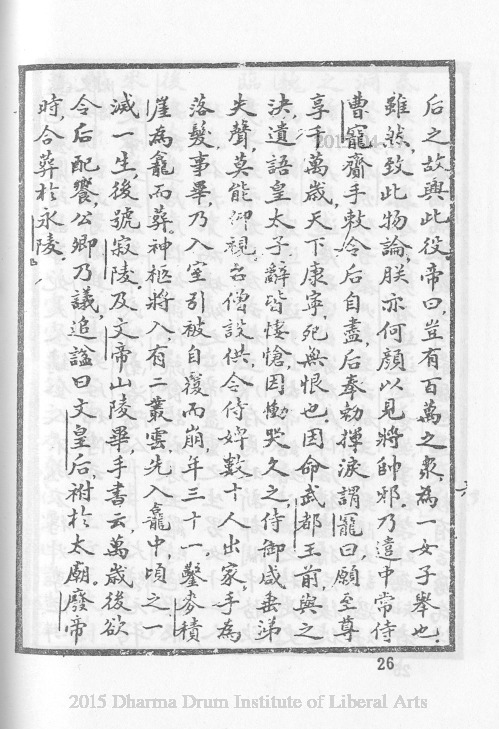 后之故興此役。帝曰，豈有百萬之衆，為一女子舉也。
雖然，致此物論，朕亦何顏以見將帥邪。乃遣中常侍
曹寵齎手敕令后自盡，后奉勅揮淚謂寵曰，願至尊
享千萬歲，天下康寧，死無恨也。因命武都王前，與之
決，遺語皇太子，辭皆悽愴，因慟哭久之，侍御咸垂涕
失聲，莫能仰視。召僧設供，令侍婢數十人出家，手為
落髮，事畢乃入室，引被自覆而崩，年三十一。鑿麥積
崖為龕而葬。神柩將入，有二叢雲，先入龕中，頃之一
滅一生，後號寂陵。及文帝山陵畢，手書云，萬歲後欲
令后配饗，公卿乃議，追諡曰文皇后，祔於太廟。廢帝
時，合葬於永陵。
26
2015 Dharma Drum Institute of Liberal Arts